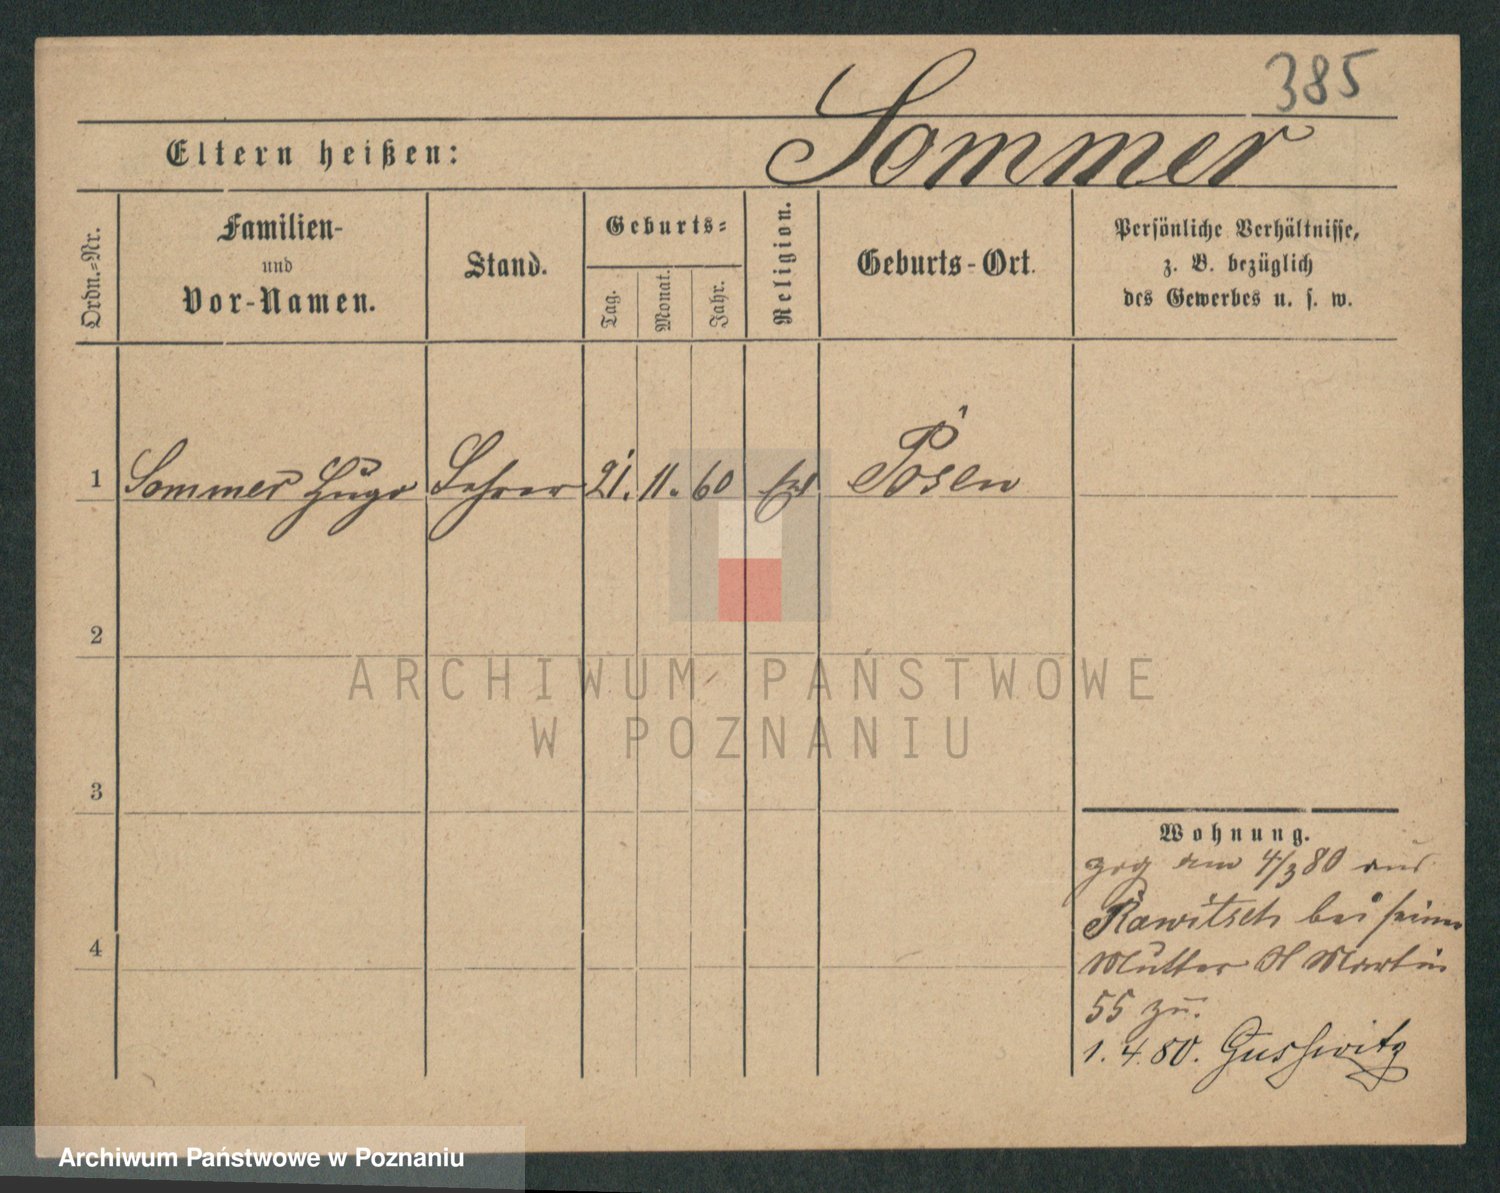 385
Sommer
Eltern heißen:
Ordn.=Nr.
Familien-
und
Vor-Namen.
Stand.
Geburts=
Tag.
Monat.
Jahr.
Religion.
Geburts-Ort.
Persönliche Verhältnisse,
z. B. bezüglich
des Gewerbes u. s. w.
1 Sommer Hugo Lehrer 21. 11. 60 Posen
2
3
4
ARCHIWUM PAŃSTWOWE
W POZNANIU
Wohnung.
am 4/3 80 aus
Rawitsch bei seiner
Mutter St Martin
55 zu.
1. 4. 80.
Archiwum Państwowe w Poznaniu